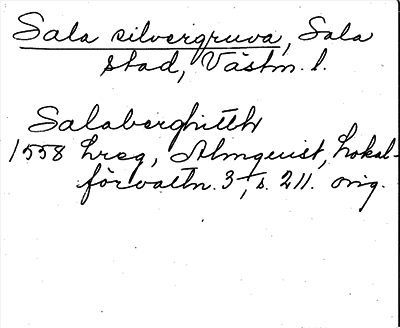 Sala silvergruva, Sala
stad, Västm. l.
Salaberghitth
1558 hreg, Almquist, Lokal-
förvaltn. 3, s. 211. orig.